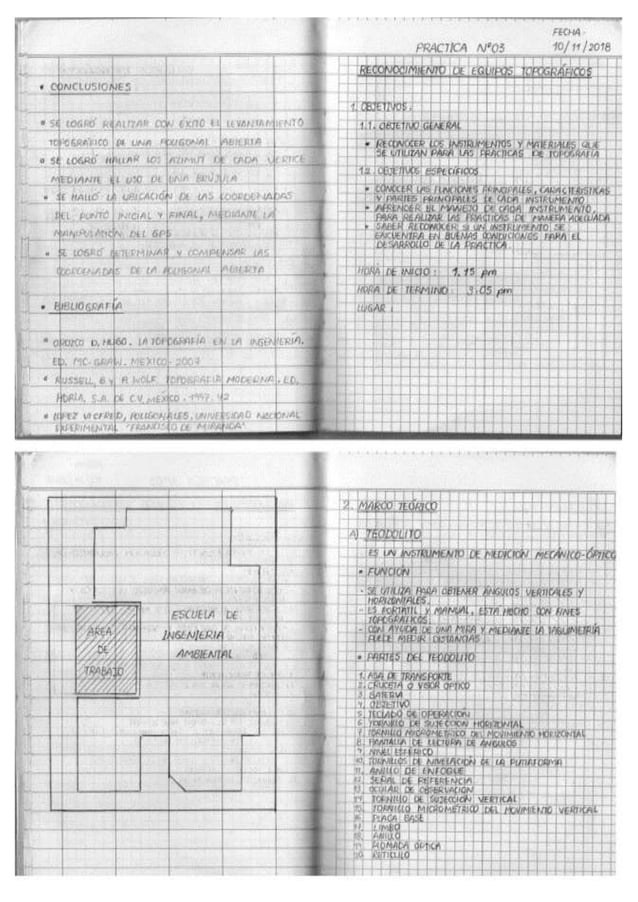 • CONCLUSIONES
• SE LOGRÓ REALIZAR CON ÉXITO EL LEVANTAMIENTO
TOPOGRÁFICO DE UNA POLIGONAL ABIERTA
• SE LOGRÓ HALLAR LOS AZIMUT DE CADA VERTICE
MEDIANTE EL USO DE UNA BRÚJULA
• SE HALLÓ LA UBICACIÓN DE LAS COORDENADAS
DEL PUNTO INICIAL Y FINAL, MEDIANTE LA
MANIPULACIÓN DEL GPS
• SE LOGRÓ DETERMINAR Y COMPENSAR LAS
COORDENADAS DE LA POLIGONAL ABIERTA
• BIBLIOGRAFÍA
• OROZCO D, HUGO. LA TOPOGRAFÍA EN LA INGENIERÍA.
ED. MC-GRAW. MEXICO-2007
• RUSSELL, B Y P. WOLF. TOPOGRAFIA MODERNA. ED.
HORIA, S.A. DE C.V. MEXICO. 1997.
• LOPEZ WILFRED, POLIGONALES, UNIVERSIDAD NACIONAL
EXPERIMENTAL "FRANCISCO DE MIRANDA"
FECHA:
PRACTICA N°03 10/11/2018
RECONOCIMIENTO DE EQUIPOS TOPOGRÁFICOS
1. OBJETIVOS:
1.1. OBJETIVO GENERAL
• RECONOCER LOS INSTRUMENTOS Y MATERIALES QUE
SE UTILIZAN PARA LAS PRACTICAS DE TOPOGRAFÍA
1.2. OBJETIVOS ESPECIFICOS
• CONOCER LAS FUNCIONES PRINCIPALES, CARACTERÍSTICAS
Y PARTES PRINCIPALES DE CADA INSTRUMENTO
• APRENDER EL MANEJO DE CADA INSTRUMENTO,
PARA REALIZAR LAS PRACTICAS DE MANERA ADECUADA
• SABER RECONOCER SI UN INSTRUMENTO SE
ENCUENTRA EN BUENAS CONDICIONES PARA EL
DESARROLLO DE LA PRÁCTICA.
HORA DE INICIO: 1.15 pm
HORA DE TERMINO: 3.05 pm
LUGAR:
ESCUELA DE
INGENIERIA
AMBIENTAL
AREA
DE
TRABAJO
2. MARCO TEÓRICO
A) TEODOLITO
ES UN INSTRUMENTO DE MEDICIÓN MECÁNICO-ÓPTICO
• FUNCIÓN
- SE UTILIZA PARA OBTENER ÁNGULOS VERTICALES Y
HORIZONTALES.
- ES PORTATIL Y MANUAL, ESTA HECHO CON FINES
TOPOGRÁFICOS
- CON AYUDA DE UNA MIRA Y MEDIANTE LA TAQUIMETRÍA
PUEDE MEDIR DISTANCIAS
• PARTES DEL TEODOLITO
1. ASA DE TRANSPORTE
2. CRUCETA O VISOR OPTICO
3. BATERIA
4. OBJETIVO
5. TECLADO DE OPERACION
6. TORNILLO DE SUJECCION HORIZONTAL
7. TORNILLO MICROMETRICO DEL MOVIMIENTO HORIZONTAL
8. PANTALLA DE LECTURA DE ANGULOS
9. NIVEL ESFÉRICO
10. TORNILLOS DE NIVELACIÓN DE LA PLATAFORMA
11. ANILLO DE ENFOQUE
12. SEÑAL DE REFERENCIA
13. OCULAR DE OBSERVACION
14. TORNILLO DE SUJECCIÓN VERTICAL
15. TORNILLO MICROMÉTRICO DEL MOVIMIENTO VERTICAL
16. PLACA BASE
17. LIMBO
18. ANILLO
19. PLOMADA ÓPTICA
20. RETICULO